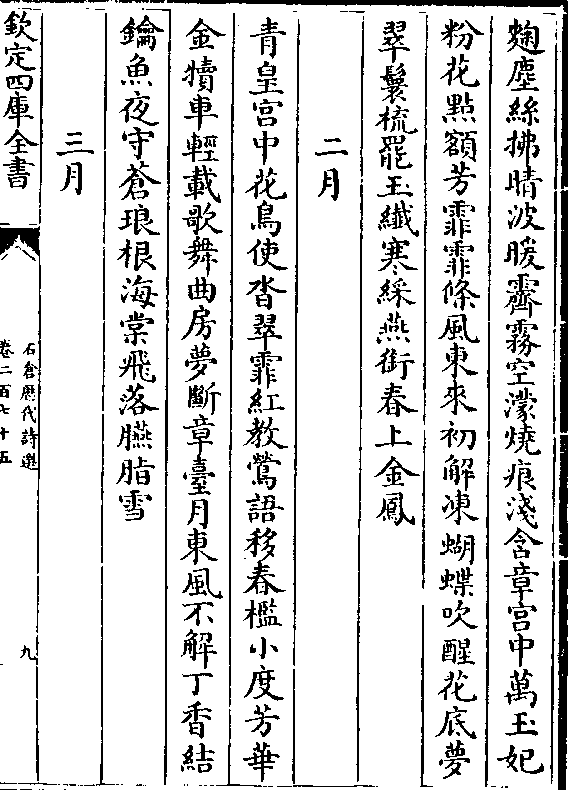 麴塵絲拂晴波暖霽霧空濛燒痕淺含章宮中萬玉妃
粉花點額芳霏霏條風東來初解凍蝴蝶吹醒花底夢
翠鬟梳罷玉纖寒綵燕銜春上金鳳
二月
青皇宮中花鳥使沓翠霏紅教鶯語移春檻小度芳華
金犢車輕載歌舞曲房夢斷章臺月東風不解丁香結
鑰魚夜守蒼琅根海棠飛落臙脂雪
三月
欽定四庫全書
石倉歷代詩選
卷二百七十五
九